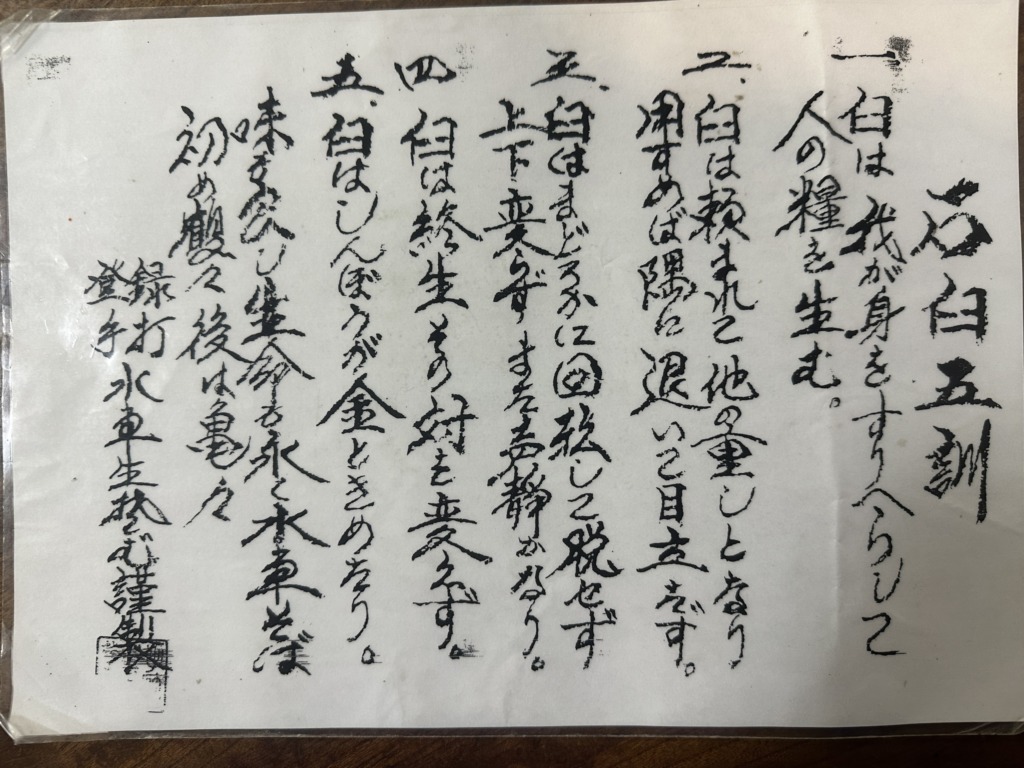 石臼五訓
一、臼は我が身をすりへらして
人の糧を生む。
二、臼は頼まれて他の重しとなり
用すめば隅に退いて目立たず。
三、臼はまどかに回転して脱せず
上下変らずまた静かなり。
四 臼は終生その対を変えず。
五、臼はしんぼうが金ときめたり。
味を容し生命も永く水車そば
初め鶴々後は亀々
登録 手打 水車生そば謹製